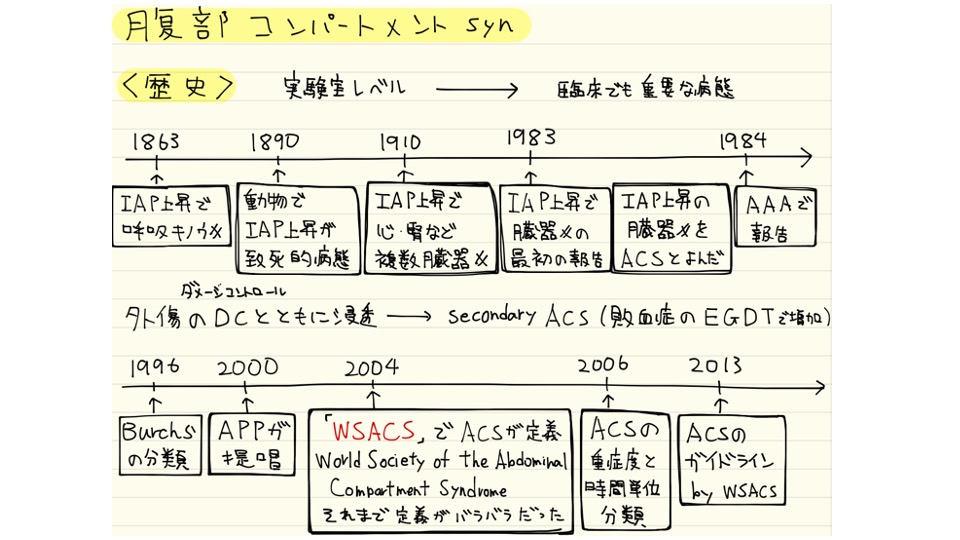 腹部コンパートメント syn
<歴史> 実験室レベル → 臨床でも重要な病態
1863 1890 1910 1983 1984
IAP上昇で
呼吸キノウ〆
動物で
IAP上昇が
致死的病態
IAP上昇で
心・腎など
複数臓器〆
IAP上昇で
臓器〆の
最初の報告
IAP上昇の
臓器〆を
ACSとよんだ
AAAで
報告
ダメージコントロール
外傷のDCとともに浸透 → secondary ACS (敗血症のEGDTで増加)
1996 2000 2004 2006 2013
Burchs
の分類
APPが
提唱
「WSACS」でACSが定義
World Society of the Abdominal
Compartment Syndrome
それまで定義がバラバラだった
ACSの
重症度と
時間単位
分類
ACSの
ガイドライン
by WSACS